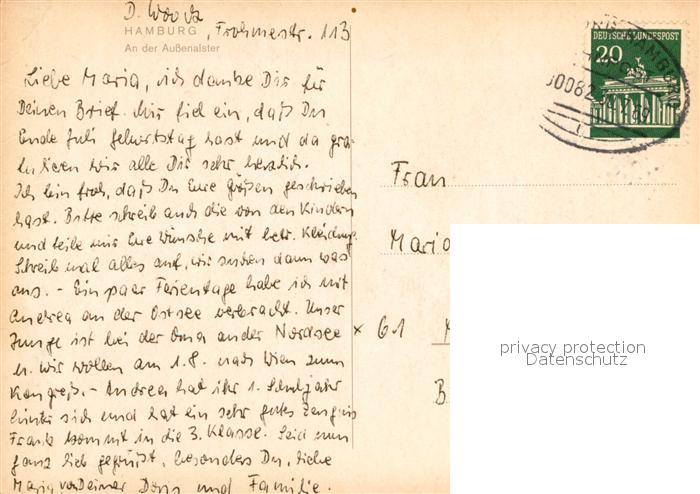 D. Woock
HAMBURG, Frohmestr. 113
An der Außenalster
Liebe Maria, ich danke Dir für
Deinen Brief. Mir fiel ein, daß Du
Ende Juli Geburtstag hast und da gra-
tulieren wir alle Dir sehr herzlich.
Ich bin froh, daß Du Eure Größen geschrieben
hast. Bitte schreib auch die von den Kindern
und teile mir Eure Wünsche mit betr. Kleidung.
Schreib mal alles auf, wir suchen dann was
aus. - Ein paar Ferientage habe ich mit
Andrea an der Ostsee verbracht. Unser
Junge ist bei der Oma an der Nordsee
u. wir wollen am 1.8. nach Wien zum
Kongreß. - Andrea hat ihr 1. Schuljahr
hinter sich und hat ein sehr gutes Zeugnis
Frank kommt in die 3. Klasse. Seid nun
ganz lieb gegrüßt, besonders Du, liebe
Maria, von Deiner Doris und Familie.
DEUTSCHE BUNDESPOST
20
HAMBURG
0082
Frau
Maria
x 61
B
privacy protection
Datenschutz